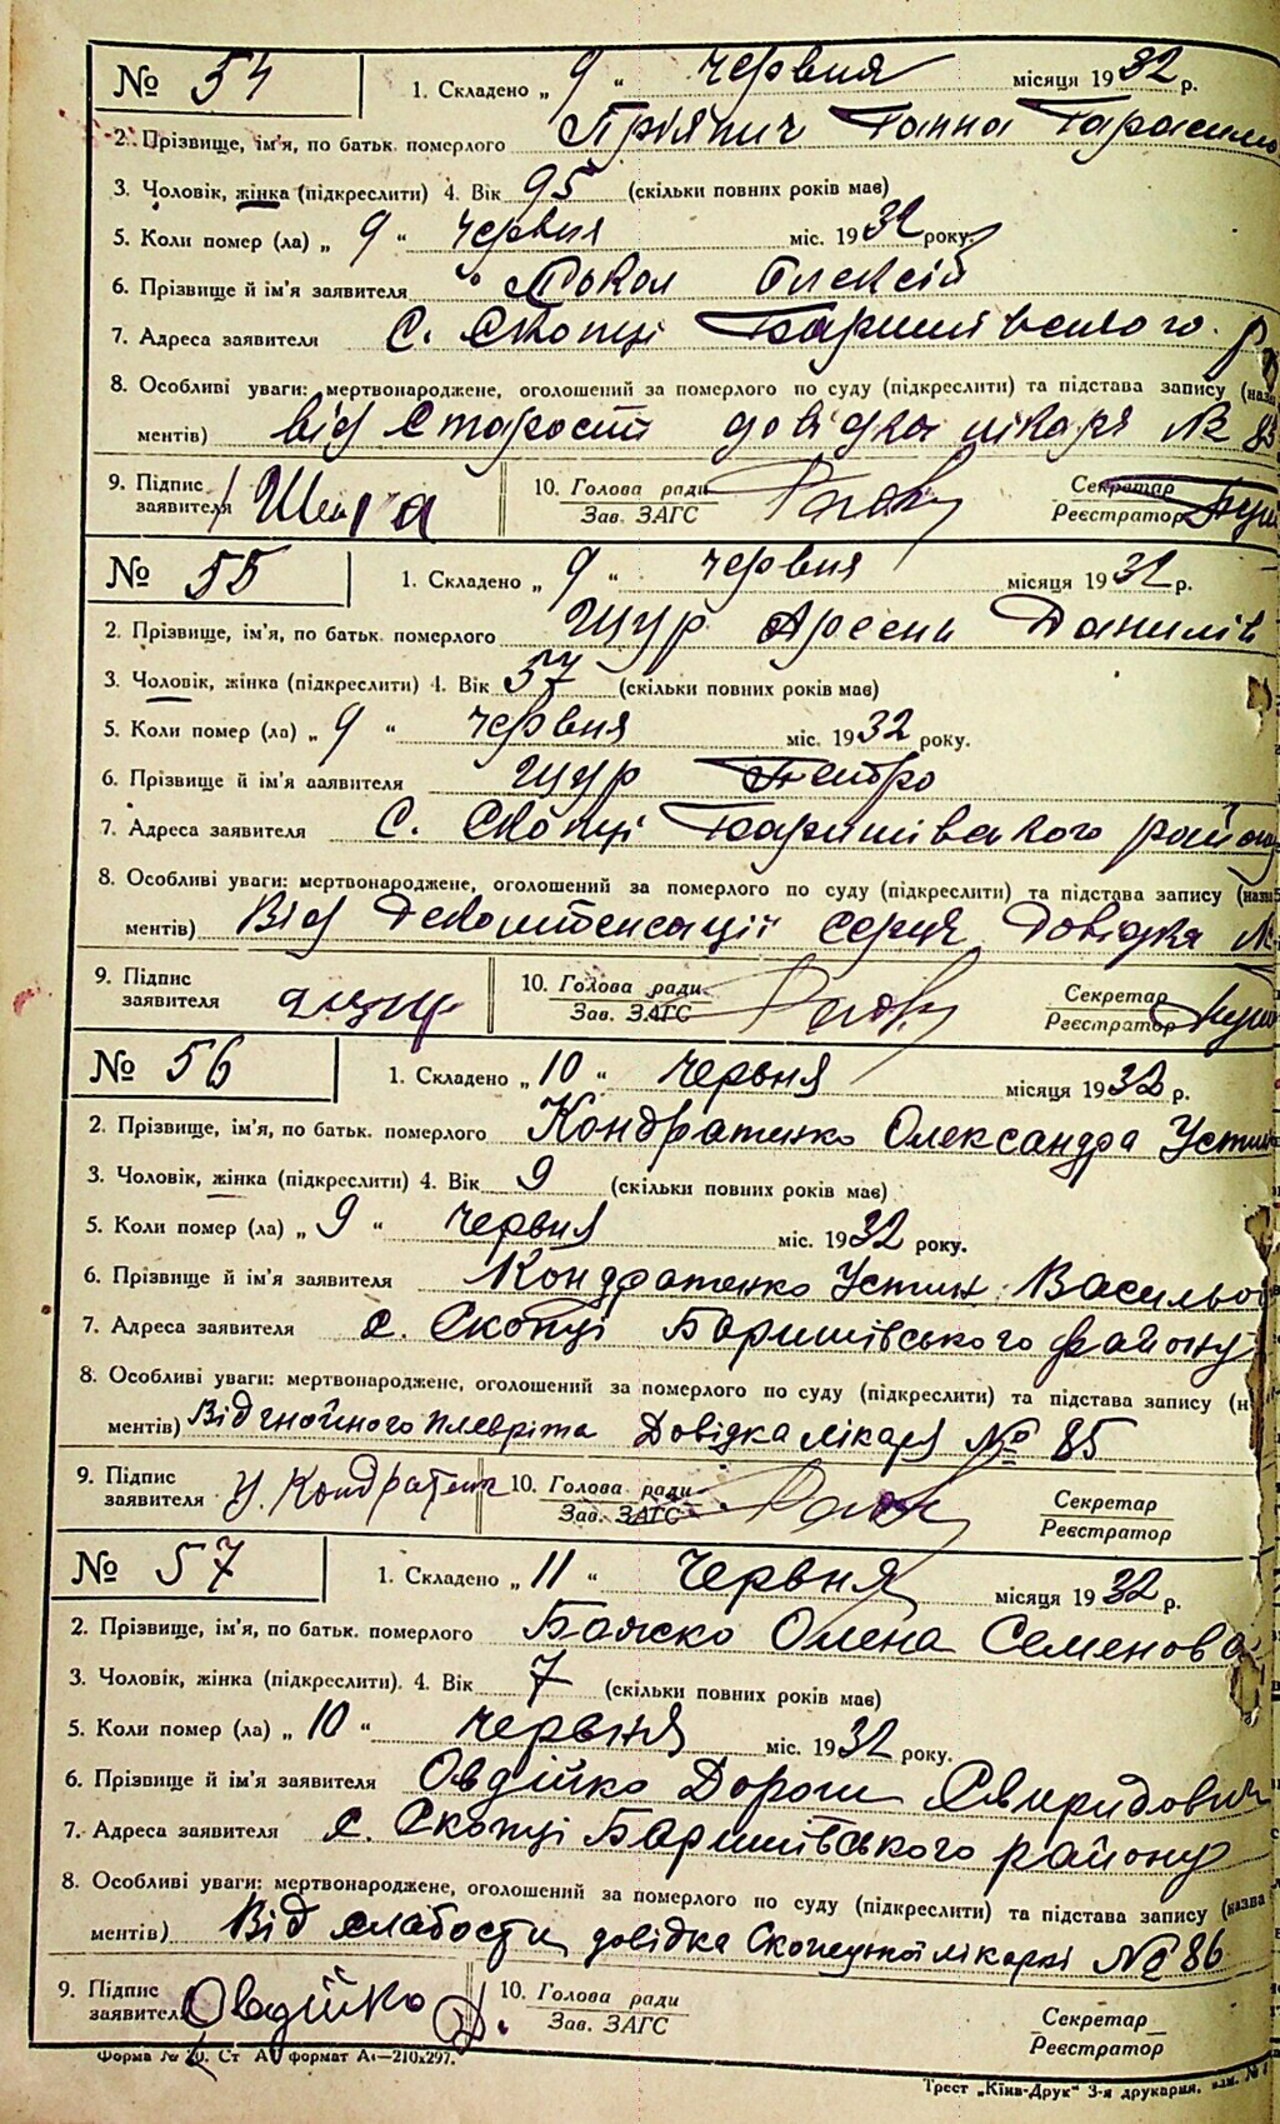 № 54 1. Складено „ 9 “ червня місяця 1932 р.
2. Прізвище, ім'я, по батьк. померлого Ганна
3. Чоловік, жінка (підкреслити) 4. Вік 95 (скільки повних років має)
5. Коли помер (ла) „ 9 “ червня міс. 1932 року.
6. Прізвище й ім'я заявителя Олексій
7. Адреса заявителя С. Скопці Баришівського
8. Особливі уваги: мертвонароджене, оголошений за померлого по суду (підкреслити) та підстава запису
ментів) від старости довідка лікаря №
9. Підпис заявителя 10. Голова ради Зав. ЗАГС Секретар Реєстратор
№ 55 1. Складено „ 9 “ червня місяця 1932 р.
2. Прізвище, ім'я, по батьк. померлого Щур Арсень Данилів
3. Чоловік, жінка (підкреслити) 4. Вік 57 (скільки повних років має)
5. Коли помер (ла) „ 9 “ червня міс. 1932 року.
6. Прізвище й ім'я заявителя Щур Петро
7. Адреса заявителя С. Скопці Баришівського
8. Особливі уваги: мертвонароджене, оголошений за померлого по суду (підкреслити) та підстава запису
ментів) Від декомпенсації серця Довідка
9. Підпис заявителя 10. Голова ради Зав. ЗАГС Секретар Реєстратор
№ 56 1. Складено „ 10 “ червня місяця 1932 р.
2. Прізвище, ім'я, по батьк. померлого Кондратенко Олександра
3. Чоловік, жінка (підкреслити) 4. Вік 9 (скільки повних років має)
5. Коли помер (ла) „ 9 “ червня міс. 1932 року.
6. Прізвище й ім'я заявителя Кондратенко Устин
7. Адреса заявителя с. Скопці Баришівського району
8. Особливі уваги: мертвонароджене, оголошений за померлого по суду (підкреслити) та підстава запису
ментів) Від гнойного плевріта Довідка лікаря № 85
9. Підпис заявителя У. Кондратенк 10. Голова ради Зав. ЗАГС Секретар Реєстратор
№ 57 1. Складено „ 11 “ червня місяця 1932 р.
2. Прізвище, ім'я, по батьк. померлого Олена Семенова
3. Чоловік, жінка (підкреслити). 4. Вік 7 (скільки повних років має)
5. Коли помер (ла) „ 10 “ червня міс. 1932 року.
6. Прізвище й ім'я заявителя Овдійко Дорош Свиридович
7. Адреса заявителя с. Скопці Баришівського району
8. Особливі уваги: мертвонароджене, оголошений за померлого по суду (підкреслити) та підстава запису (назва
ментів) Від слабости довідка № 86
9. Підпис заявителя Овдійко Д. 10. Голова ради Зав. ЗАГС Секретар Реєстратор
Форма № 20. Ст А формат А₄—210х297.
Трест „Київ-Друк“ 3-я друкарня.